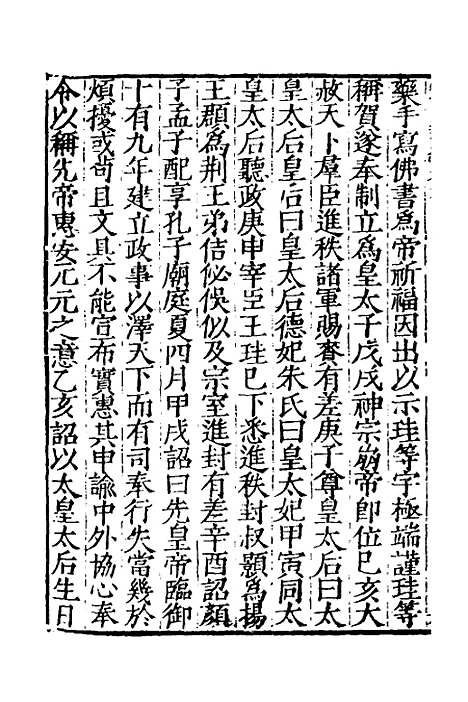 藥手寫佛書為帝祈福因出以示珪等字極端謹珪等
稱賀遂奉制立為皇太子戊戌神宗崩帝即位巳亥大
赦天卜羣臣進秩諸軍賜賚有差庚子尊皇太后曰太
皇太后皇后曰皇太后德妃朱氏曰皇太妃甲寅同太
皇太后聽政庚申宰臣王珪巳下悉進秩封叔顥為揚
王頵為荆王弟佶佖俁似及宗室進封有差辛酉詔顔
子孟子配享孔子廟庭夏四月甲戌詔曰先皇帝臨御
十有九年建立政事以澤天下而有司奉行失當幾於
煩擾或苟且文具不能宣布實惠其申諭中外協心奉
令以稱先帝惠安元元之意乙亥詔以太皇太后生日